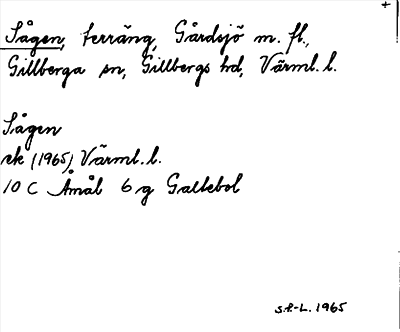 Sågen, terräng, Gårdsjö m. fl.,
Gillberga sn, Gillbergs hd, Värml. l.
Sågen
ek (1965) Värml. l.
10 C Åmål 6 g Galtebol
S.E-L. 1965